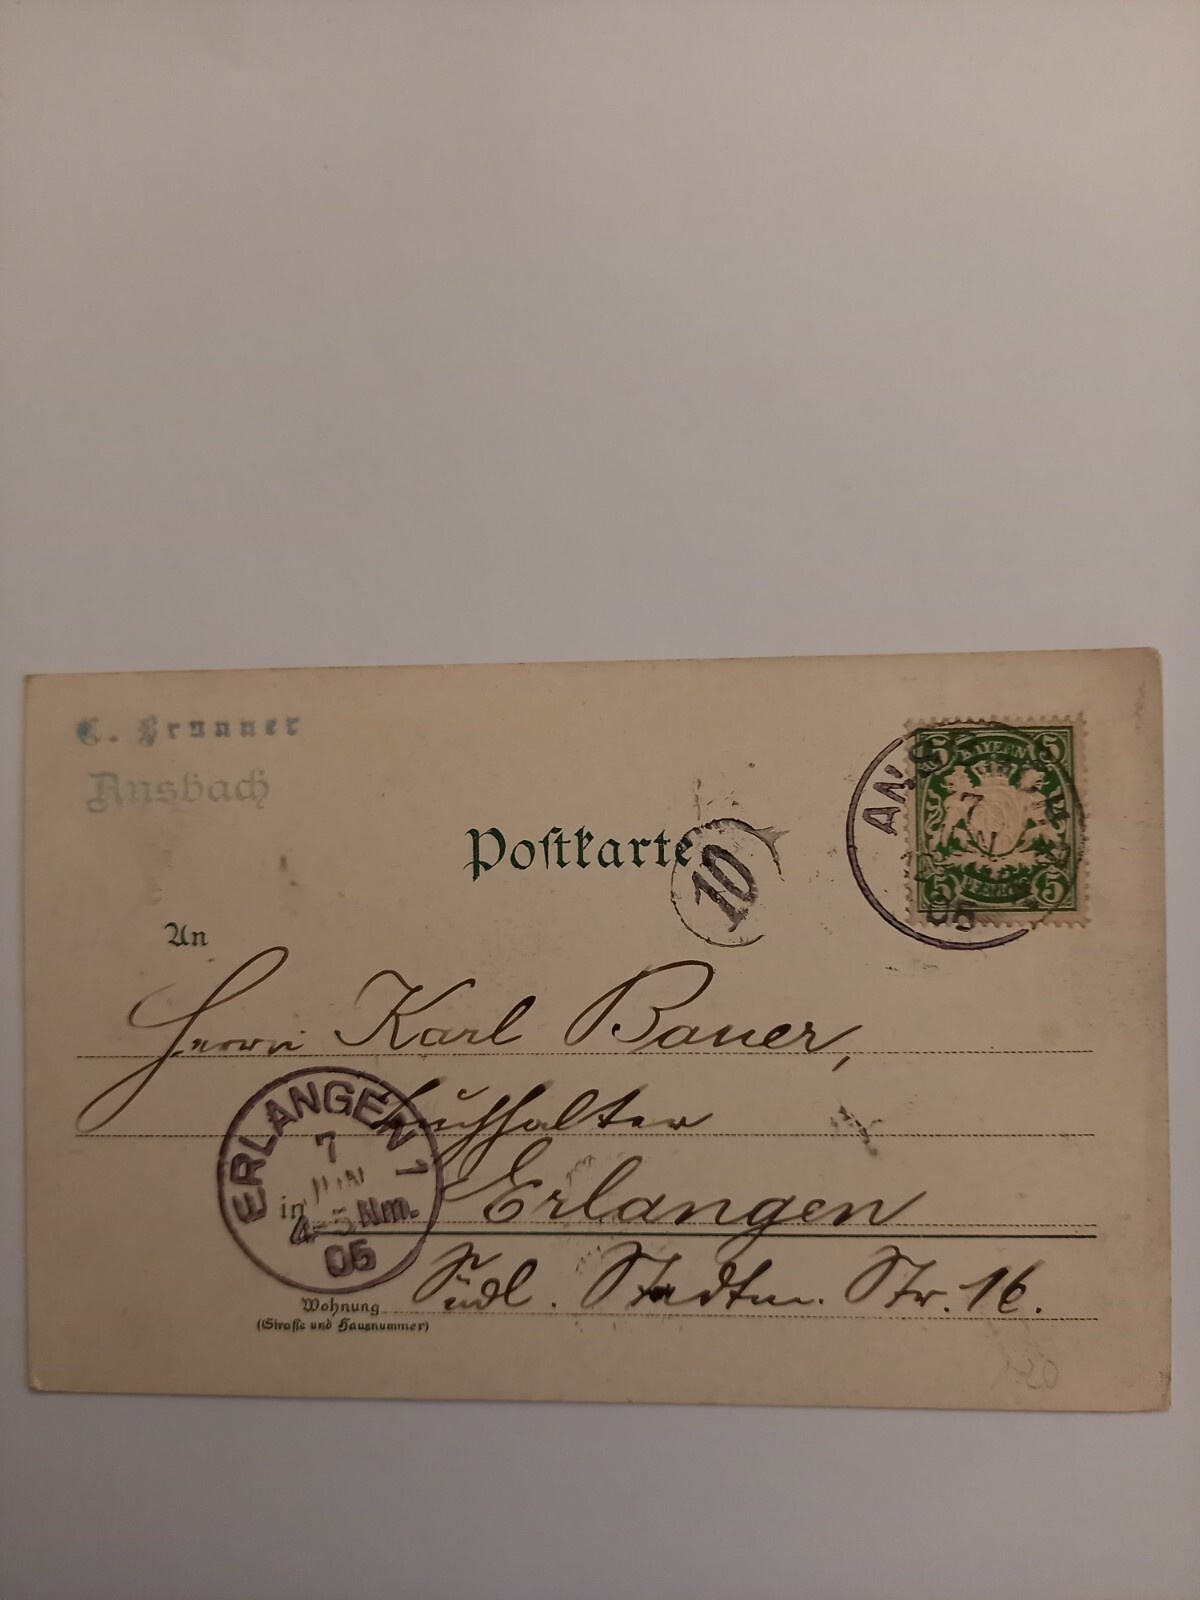 C. Brunner
Ansbach
BAYERN
5 5
5 5
PFENNIG
ANS
7
05
Poſtkarte
10
An
Herrn Karl Bauer,
Buchhalter
ERLANGEN 1
7
JUN
4-5 Nm.
05
in Erlangen
Wohnung Südl. Stadtm. Str. 16.
(Straſſe und Hausnummer)